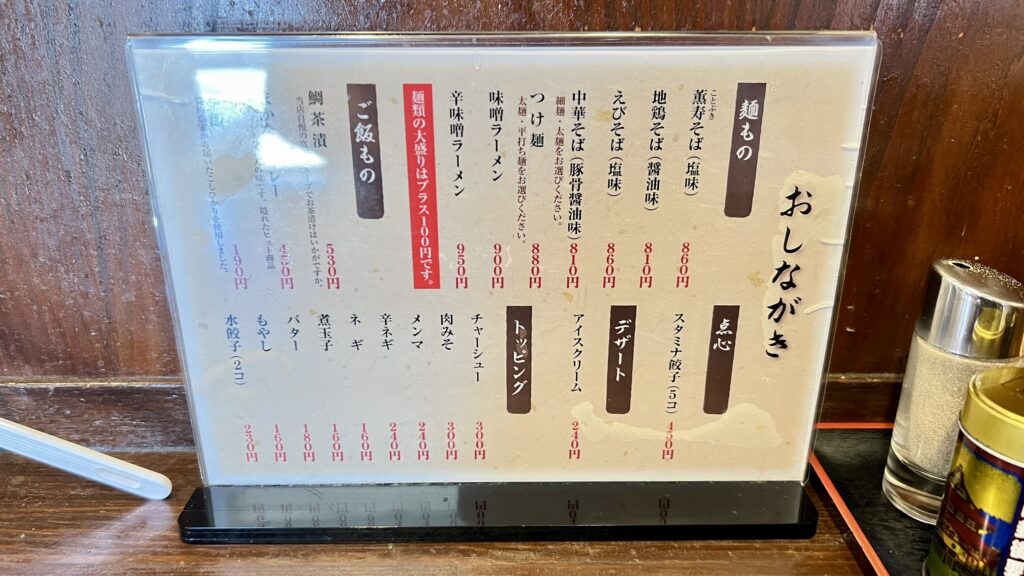 おしながき
麺もの
ことぶき
薫寿そば(塩味) 860円
地鶏そば(醤油味) 810円
えびそば(塩味) 860円
中華そば(豚骨醤油味) 810円
細麺・太麺をお選びください。
つけ麺 880円
太麺・平打ち麺をお選びください。
味噌ラーメン 900円
辛味噌ラーメン 950円
麺類の大盛りはプラス100円です。
ご飯もの
鯛茶漬 530円
当店自慢の真 スープでお茶漬けはいかがですか。
カレー 450円
です。隠れたヒット商品
190円
こしひかりを使用しました。
点心
スタミナ餃子(5コ) 450円
デザート
アイスクリーム 240円
トッピング
チャーシュー 300円
肉みそ 300円
メンマ 240円
辛ネギ 240円
ネギ 160円
煮玉子 160円
バター 180円
もやし 160円
水餃子(2コ) 230円